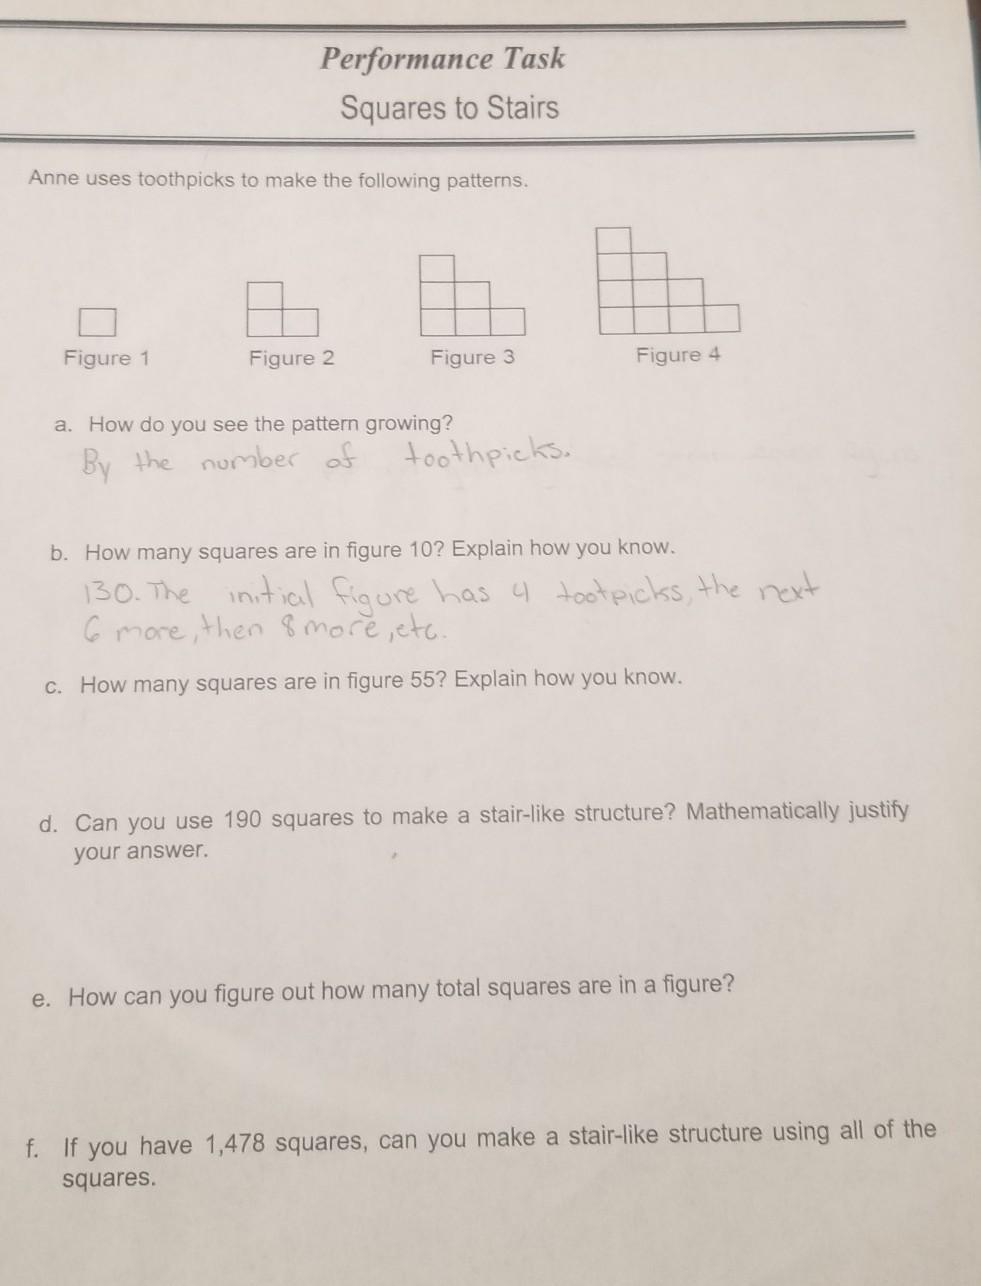 Performance Task
Squares to Stairs
Anne uses toothpicks to make the following patterns.
Figure 1 Figure 2 Figure 3 Figure 4
a. How do you see the pattern growing?
By the number of toothpicks.
b. How many squares are in figure 10? Explain how you know.
130. The initial figure has 4 tootpicks, the next
6 more, then 8 more, etc.
c. How many squares are in figure 55? Explain how you know.
d. Can you use 190 squares to make a stair-like structure? Mathematically justify
your answer.
e. How can you figure out how many total squares are in a figure?
f. If you have 1,478 squares, can you make a stair-like structure using all of the
squares.